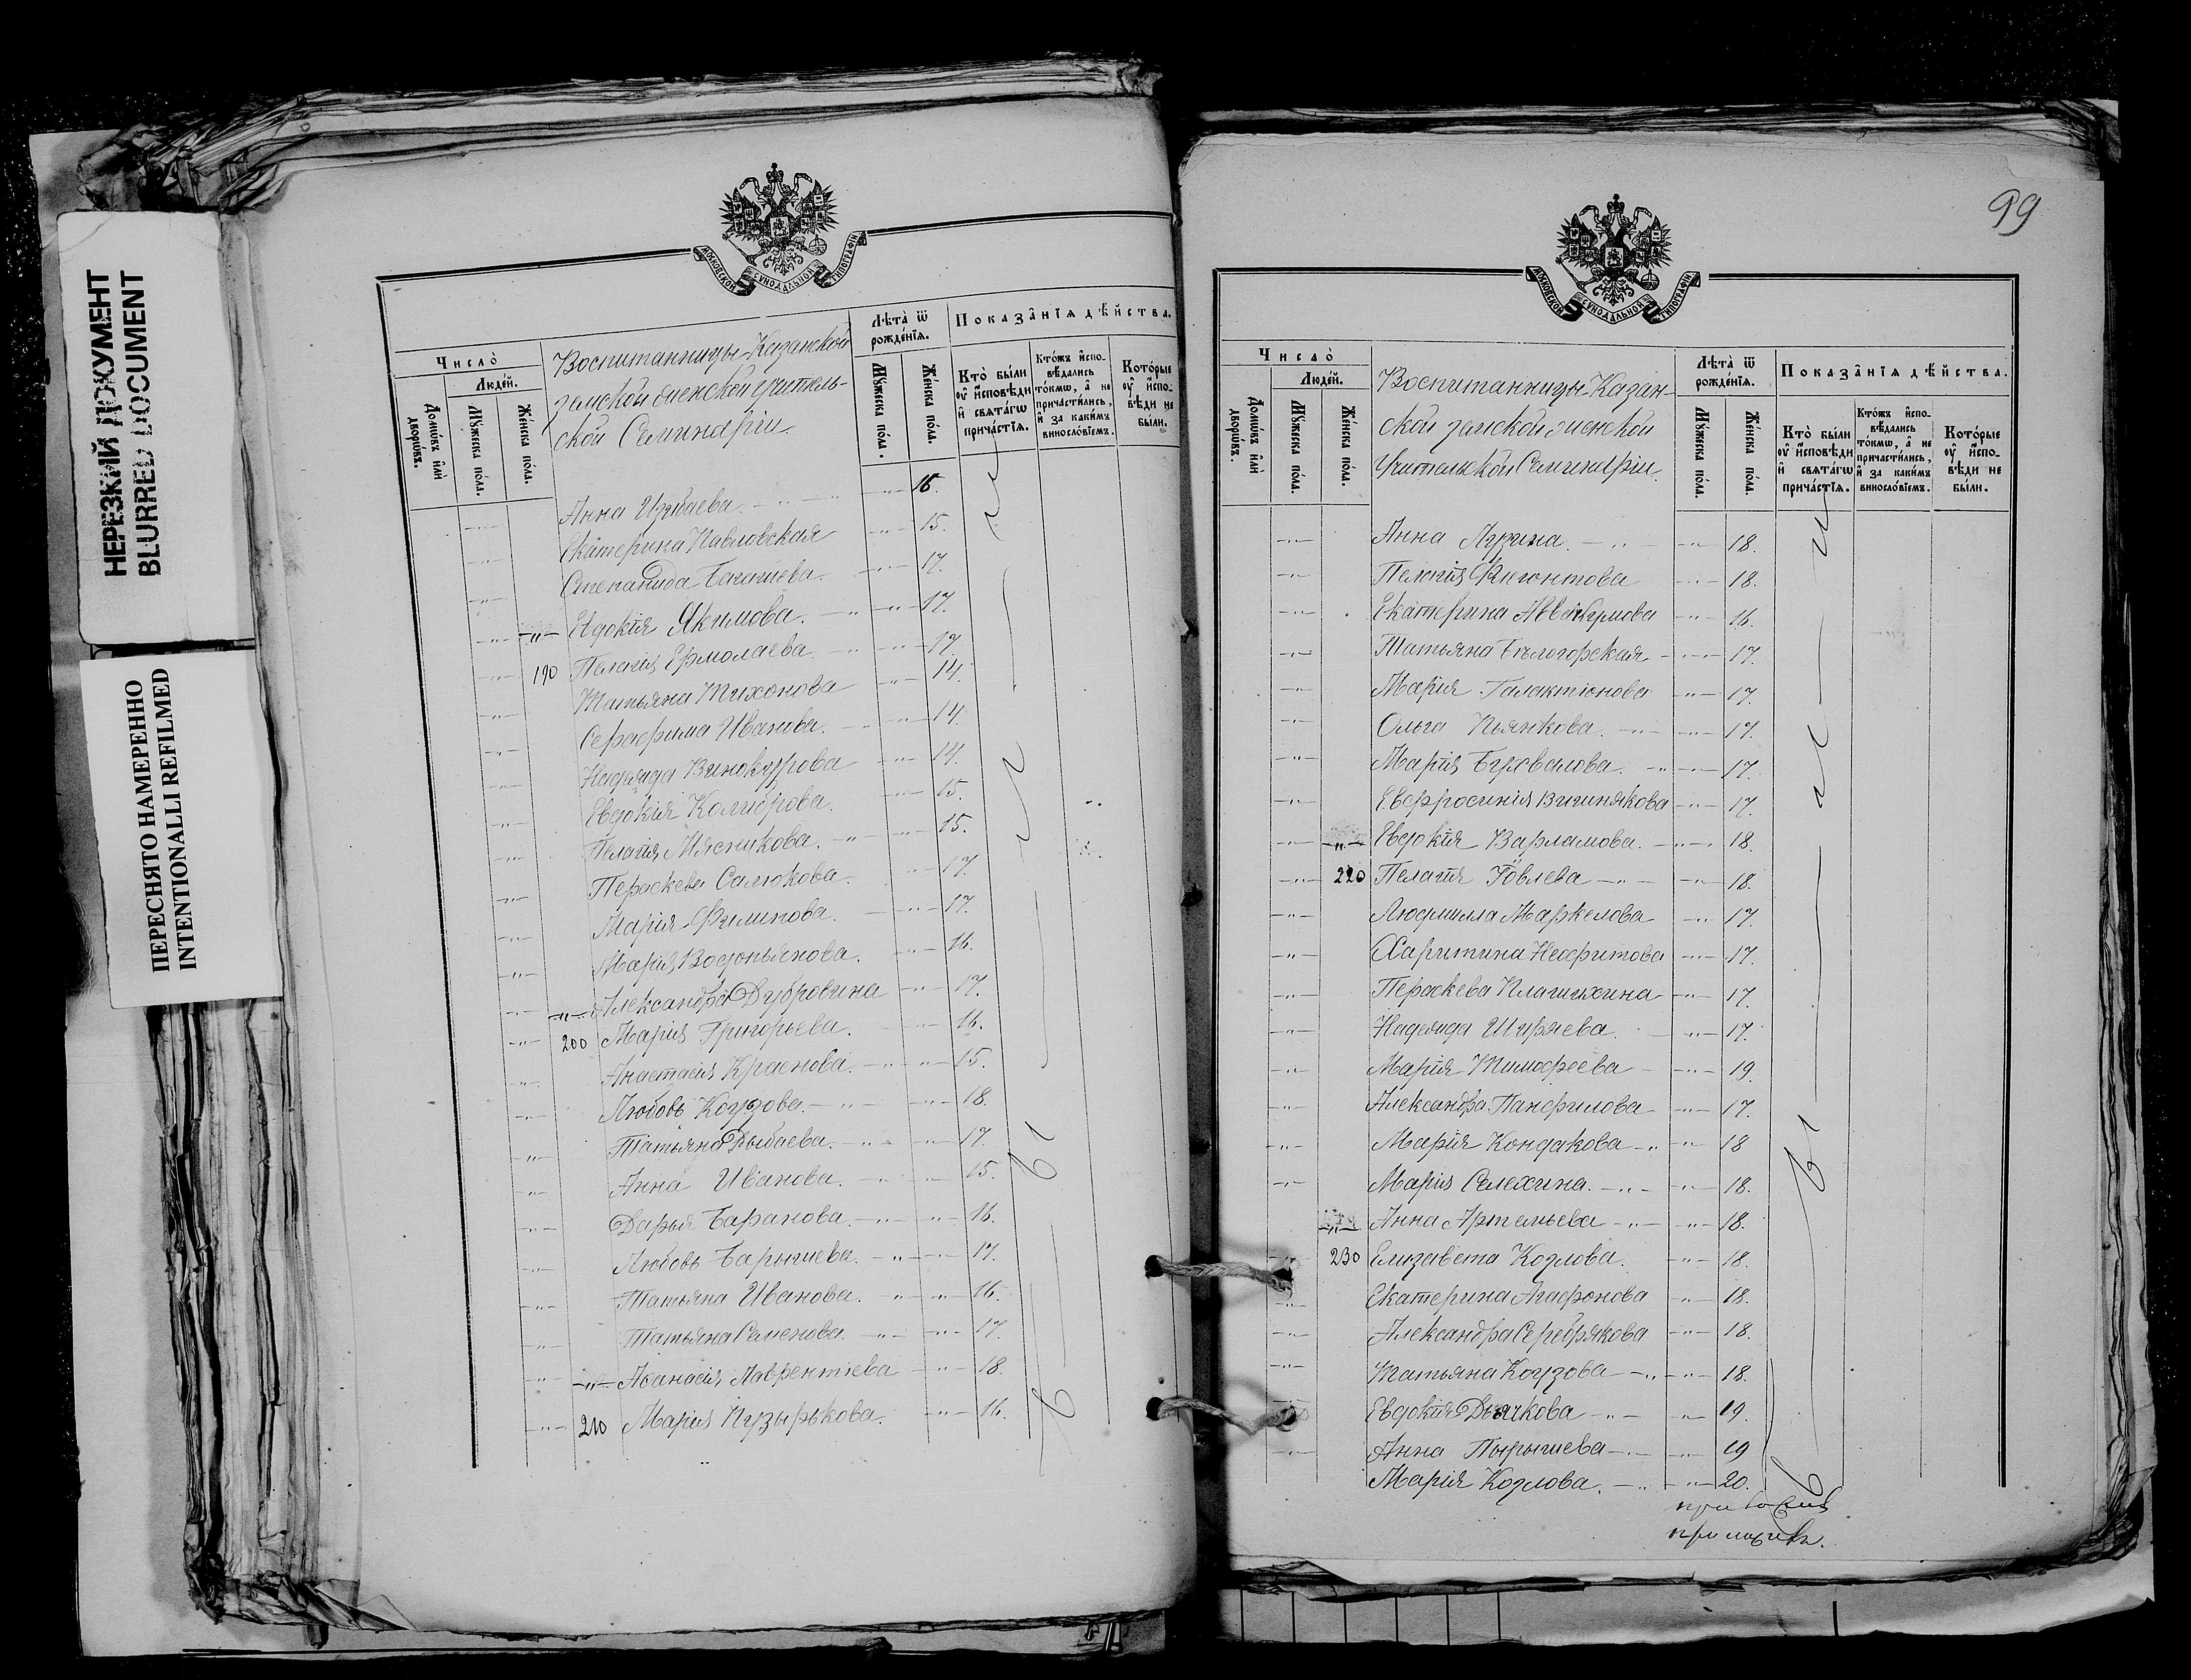 НЕРЕЗКИЙ ДОКУМЕНТ
BLURRED DOCUMENT
ПЕРЕСНЯТО НАМЕРЕННО
INTENTIONALLI REFILMED
МОСКОВСКОЙ СѴНОДАЛЬНОЙ ТИПОГРАФІИ
Число̀
Люде́й.
Домѡ́въ и҆лѝ дворѡ́въ.
Мꙋ́жеска по́ла.
Же́нска по́ла.
Воспитанницы Казанской
земской женской Учитель-
ской Семинаріи.
Лѣ́та ѿ рожде́нїѧ.
Мꙋ́жеска по́ла.
Же́нска по́ла.
Показа̑нїѧ дѣ́йства.
Кто̀ бы́ли ᲂу҆ и҆спо́вѣди и҆ свѧта́гѡ прича́стїѧ.
Кто́жъ и҆спо-вѣ́дались то́кмѡ, а҆ не причасти́лись, и҆ за каки́мъ винословїемъ.
Кото́рые ᲂу҆ и҆спо-вѣди не бы́ли.
Анна Изибаева. 16.
Екатерина Павловская 15.
Степанида Багашева. 17.
Евдокія Якимова. 17.
190 Пелагія Ермолаева 17.
Татьяна Тихонова 14.
Серафима Иванова. 14.
Надежда Винокурова 14.
Евдокія Колиброва. 15.
Пелагія Мясникова. 15.
Пераскева Салюкова. 17.
Марія Филипова. 17.
Марія Водопьянова. 16.
Александра Дубровина 17.
200 Марія Григорьева. 16.
Анастасія Краснова. 15.
Любовь Коузова. 18.
Татьяна Рыбаева. 17.
Анна Иванова. 15.
Дарья Баранова. 16.
Любовь Барышева. 17.
Татьяна Иванова. 16.
Татьяна Семенова. 17.
Аѳанасія Лаврентіева 18.
210 Марія Пузырькова. 16.
99
МОСКОВСКОЙ СѴНОДАЛЬНОЙ ТИПОГРАФІИ
Число̀
Люде́й.
Домѡ́въ и҆лѝ дворѡ́въ.
Мꙋ́жеска по́ла.
Же́нска по́ла.
Воспитанницы Казан-
ской земской женской
Учительской Семинаріи.
Лѣ́та ѿ рожде́нїѧ.
Мꙋ́жеска по́ла.
Же́нска по́ла.
Показа̑нїѧ дѣ́йства.
Кто̀ бы́ли ᲂу҆ и҆спо́вѣди и҆ свѧта́гѡ прича́стїѧ.
Кто́жъ и҆спо-вѣ́дались то́кмѡ, а҆ не причасти́лись, и҆ за каки́мъ винословїемъ.
Кото́рые ᲂу҆ и҆спо-вѣди не бы́ли.
Анна Лузина. 18.
Пелагія Флегонтова 18.
Екатерина Аввакумова 16.
Татьяна Бѣлогорская 17.
Марія Галактіонова 17.
Ольга Пьянкова. 17.
Марія Бухвалова. 17.
Евфросинія Вишнякова 17.
Евдокія Варламова. 18.
220 Пелагія Іовлева 18.
Людмилла Маркелова 17.
Харитина Неофитова 17.
Пераскева Плашихина 17.
Надежда Ширяева. 17.
Марія Тимофеева 19.
Александра Панфилова 17.
Марія Кондакова 18
Марія Селехина. 18.
Анна Артемьева 18.
230 Елизавета Козлова. 18.
Екатерина Агафонова 18.
Александра Серебрякова 18.
Татьяна Коузова 18.
Евдокія Дьячкова 19.
Анна Пырышева 19
Марія Козлова. 20.